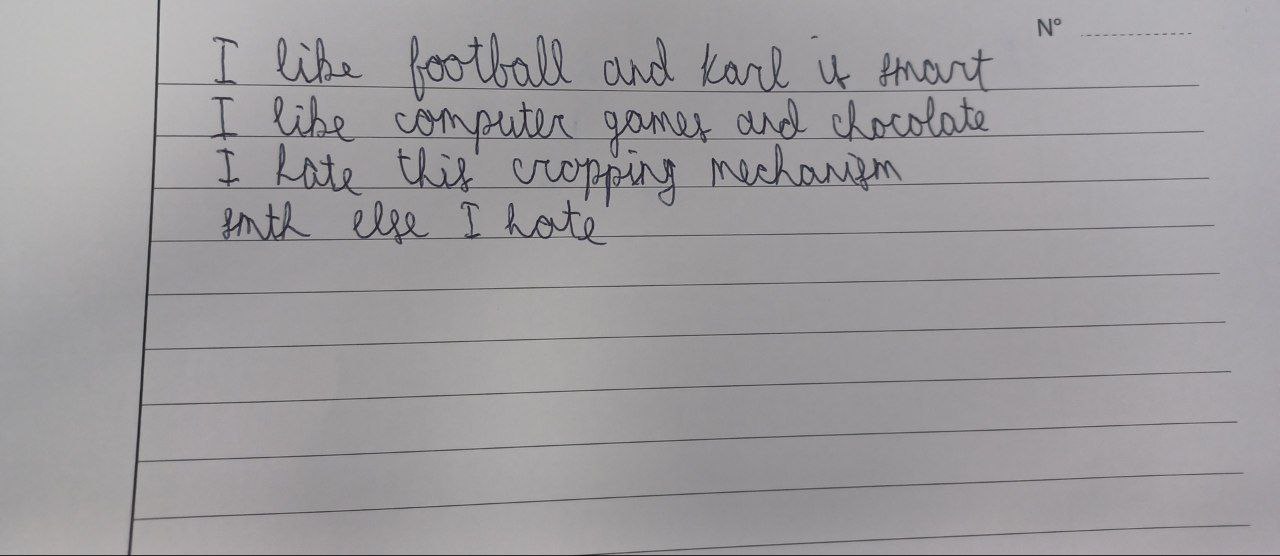 N°
I like football and karl is smart
I like computer games and chocolate
I hate this cropping mechanism
smth else I hate